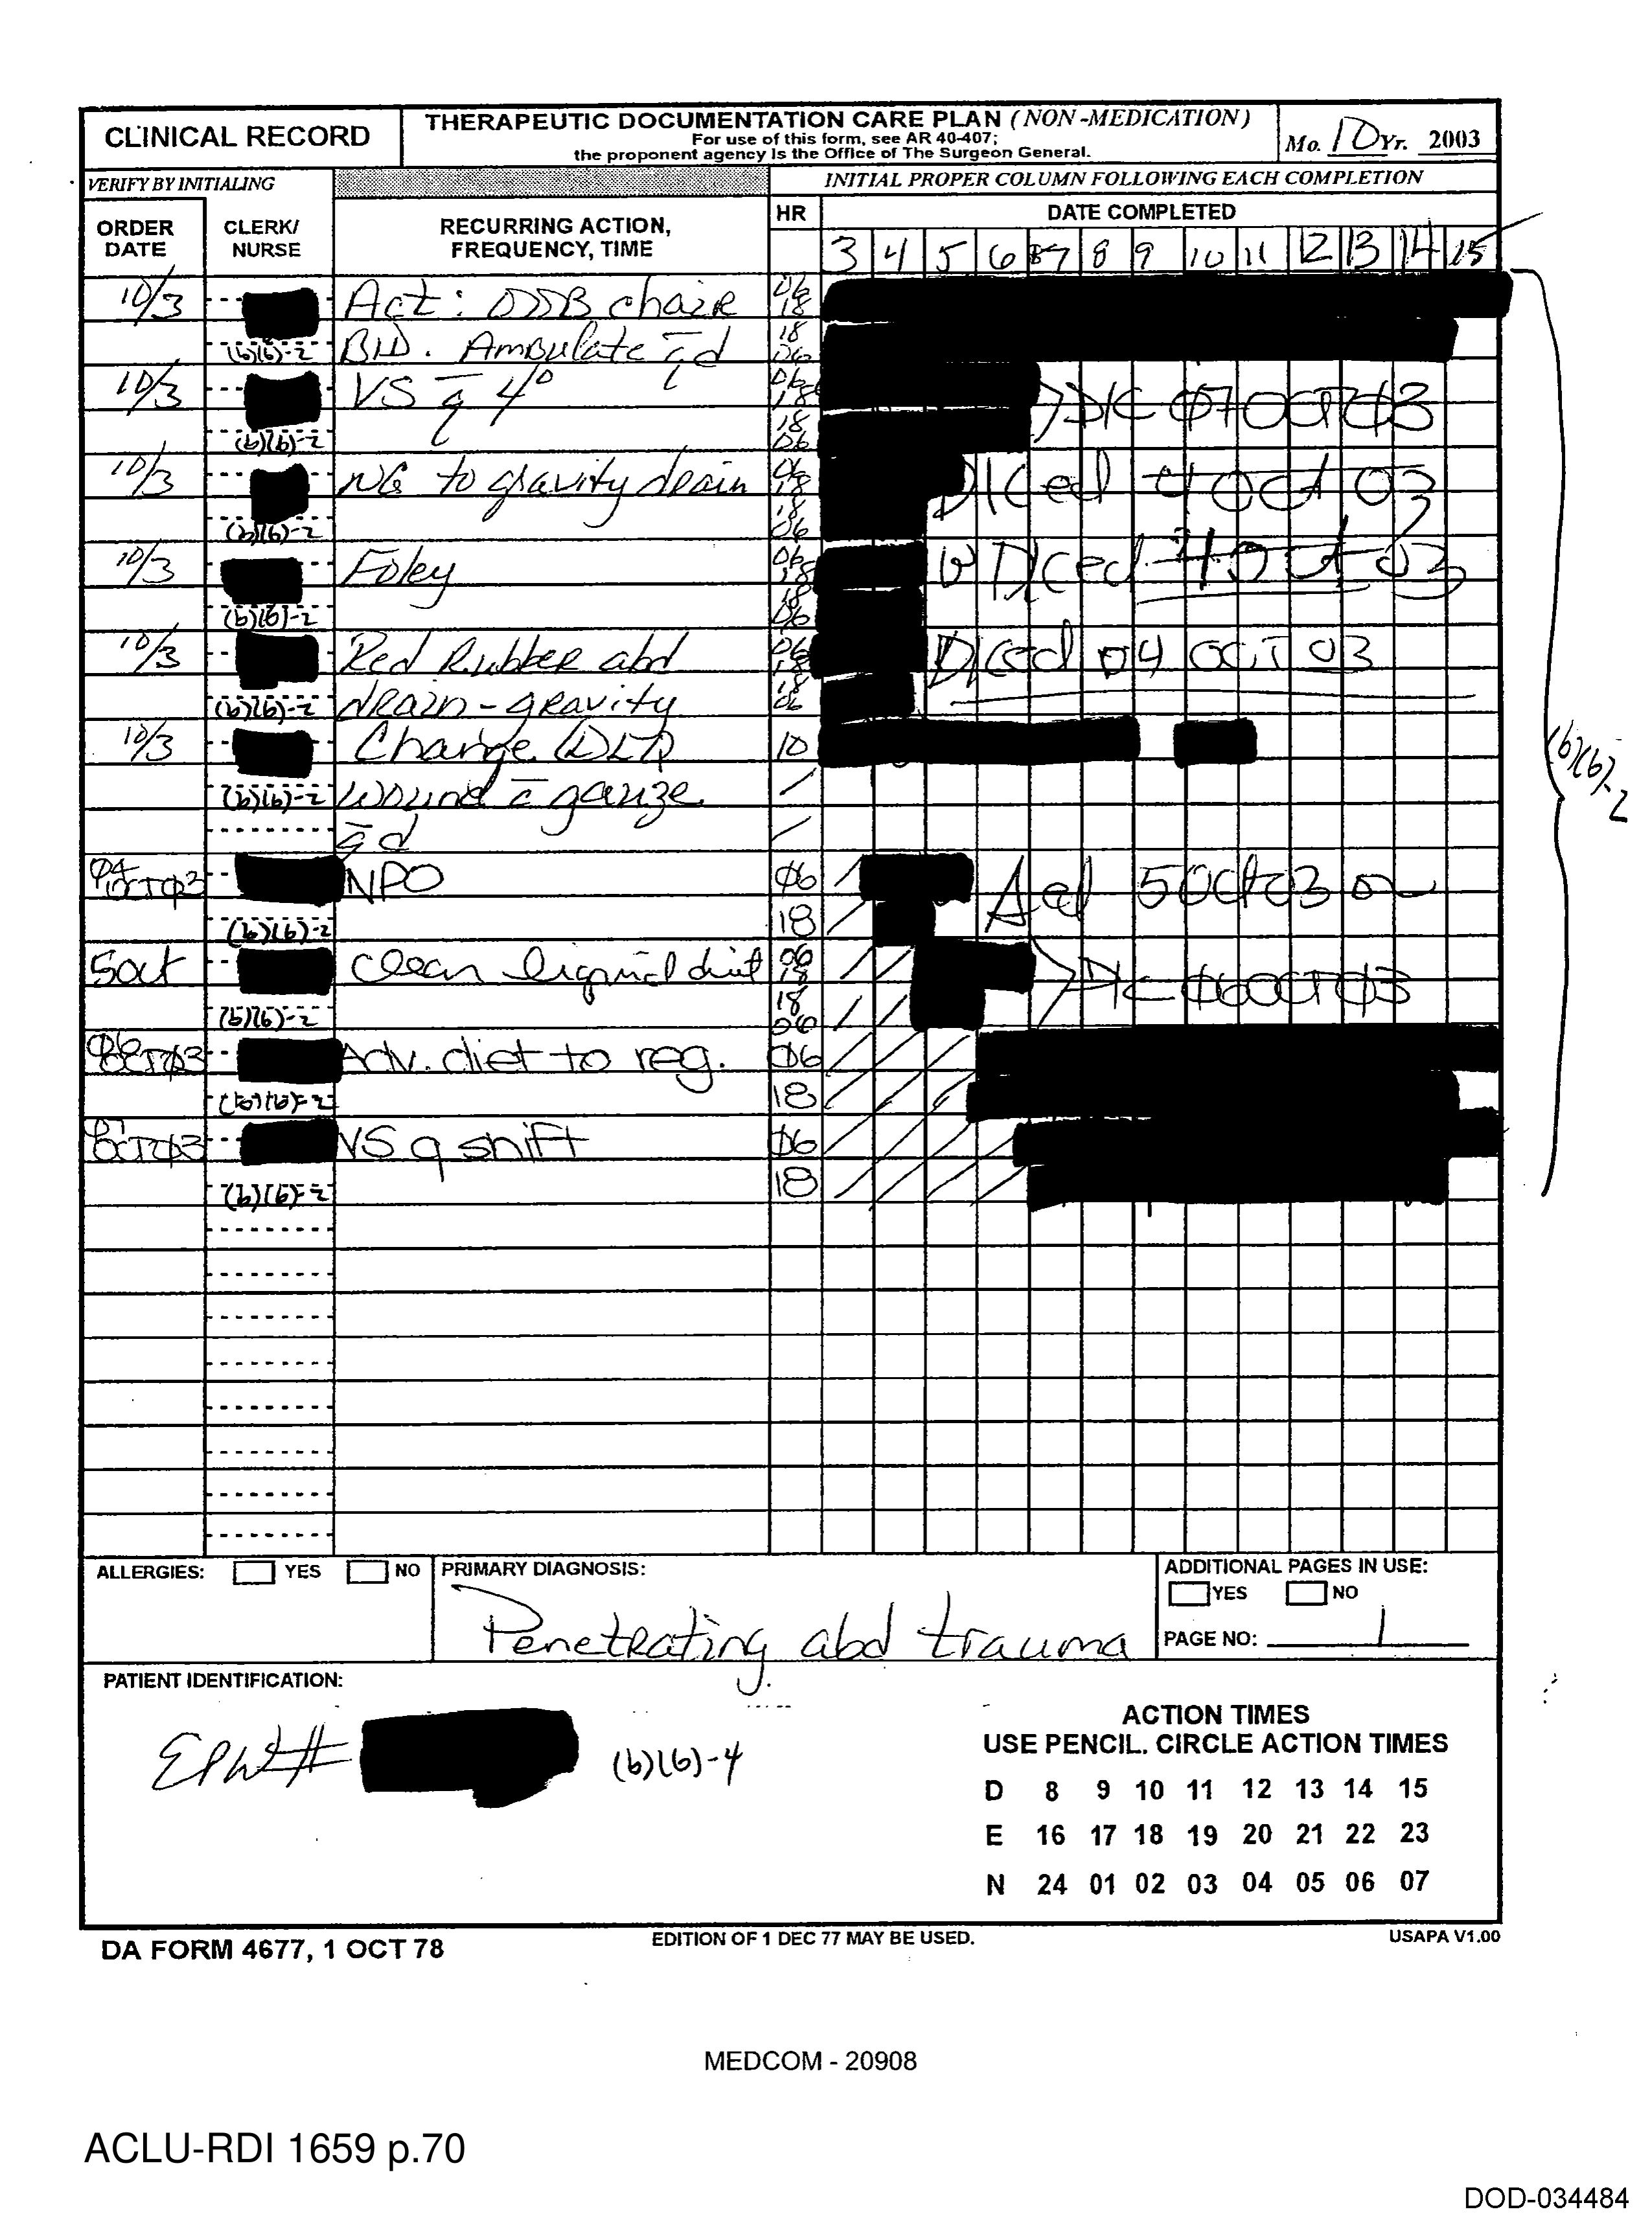 CLINICAL RECORD
THERAPEUTIC DOCUMENTATION CARE PLAN (NON-MEDICATION)
For use of this form, see AR 40-407;
the proponent agency is the Office of The Surgeon General.
Mo. 10 Yr. 2003
VERIFY BY INITIALING
INITIAL PROPER COLUMN FOLLOWING EACH COMPLETION
ORDER DATE
CLERK/ NURSE
RECURRING ACTION, FREQUENCY, TIME
HR
DATE COMPLETED
3 4 5 6 7 8 9 10 11 12 13 14 15
10/3 Act: OOB chair 06 18
(b)(6)-2 BID. Ambulate q d 18 06
10/3 VS q 4° 06 18 D/C 07OCT03
(b)(6)-2 18 06
10/3 NG to gravity drain 06 18 D/Ced 4 Oct 03
(b)(6)-2 18 06
10/3 Foley 06 18 D/Ced 4 Oct 03
(b)(6)-2 18 06
10/3 Red Rubber abd 06 18 D/Ced 04 OCT 03
(b)(6)-2 drain-gravity 18 06
10/3 Change 10
(b)(6)-2 wound c̄ gauze
q d
(b)(6)-2
04 OCT03 NPO 06 5Oct03
(b)(6)-2 18
5 Oct Clear liquid diet 06 18 D/C 06OCT03
(b)(6)-2 18 06
06 OCT03 Adv. diet to reg. 06
(b)(6)-2 18
07 OCT03 VS q shift 06
(b)(6)-2 18
ALLERGIES: YES NO
PRIMARY DIAGNOSIS:
Penetrating abd trauma
ADDITIONAL PAGES IN USE:
YES NO
PAGE NO: 1
PATIENT IDENTIFICATION:
EPW# (b)(6)-4
ACTION TIMES
USE PENCIL. CIRCLE ACTION TIMES
D 8 9 10 11 12 13 14 15
E 16 17 18 19 20 21 22 23
N 24 01 02 03 04 05 06 07
DA FORM 4677, 1 OCT 78
EDITION OF 1 DEC 77 MAY BE USED.
USAPA V1.00
MEDCOM - 20908
ACLU-RDI 1659 p.70
DOD-034484